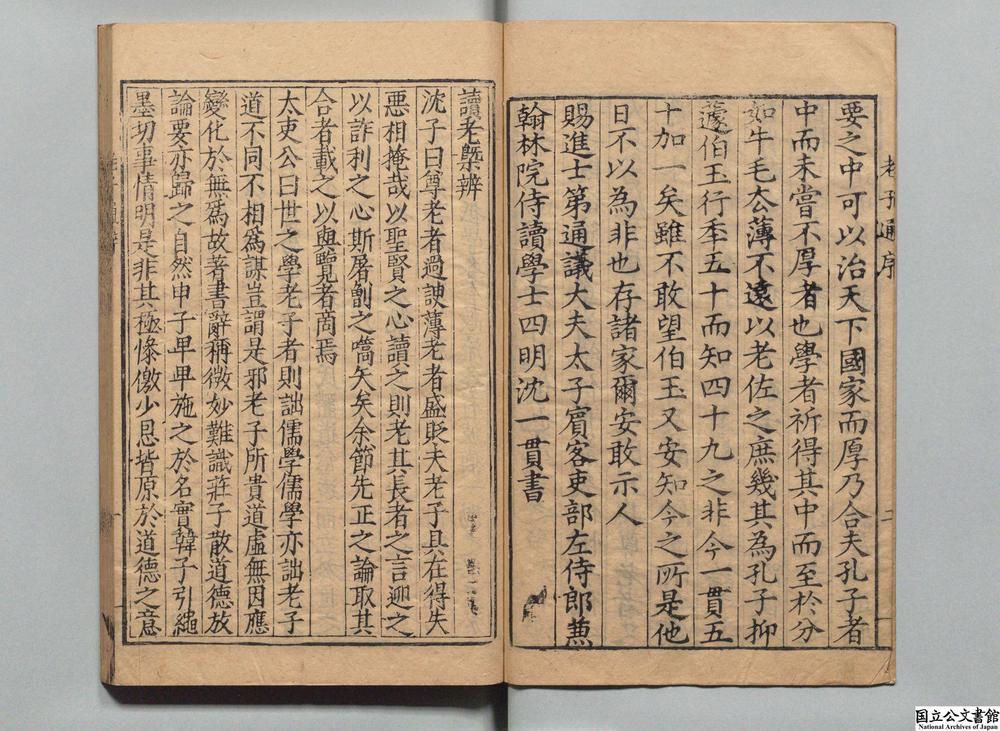 要之中可以治天下國家而厚乃合夫孔子者
中而未嘗不厚者也學者祈得其中而至於分
如牛毛太薄不遠以老佐之庶幾其為孔子抑
蘧伯玉行年五十而知四十九之非今一貫五
十加一矣雖不敢望伯玉又安知今之所是他
日不以為非也存諸家爾安敢示人
賜進士第通議大夫太子賓客吏部左侍郎蕙
翰林院侍讀學士四明沈一貫書
老子通序
二
讀老槩辨
沈子曰尊老者過諛薄老者盛貶夫老子具在得失
惡相掩哉以聖賢之心讀之則老其長者之言迎之
以詐利之心斯屠劊之嚆矢矣余節先正之論取其
合者載之以與覽者商焉
太史公曰世之學老子者則詘儒學儒學亦詘老子
道不同不相爲謀豈謂是邪老子所貴道虛無因應
變化於無爲故著書辭稱微妙難識莊子散道德放
論要亦歸之自然申子卑卑施之於名實韓子引繩
墨切事情明是非其極慘儌少恩皆原於道德之意
国立公文書館
National Archives of Japan